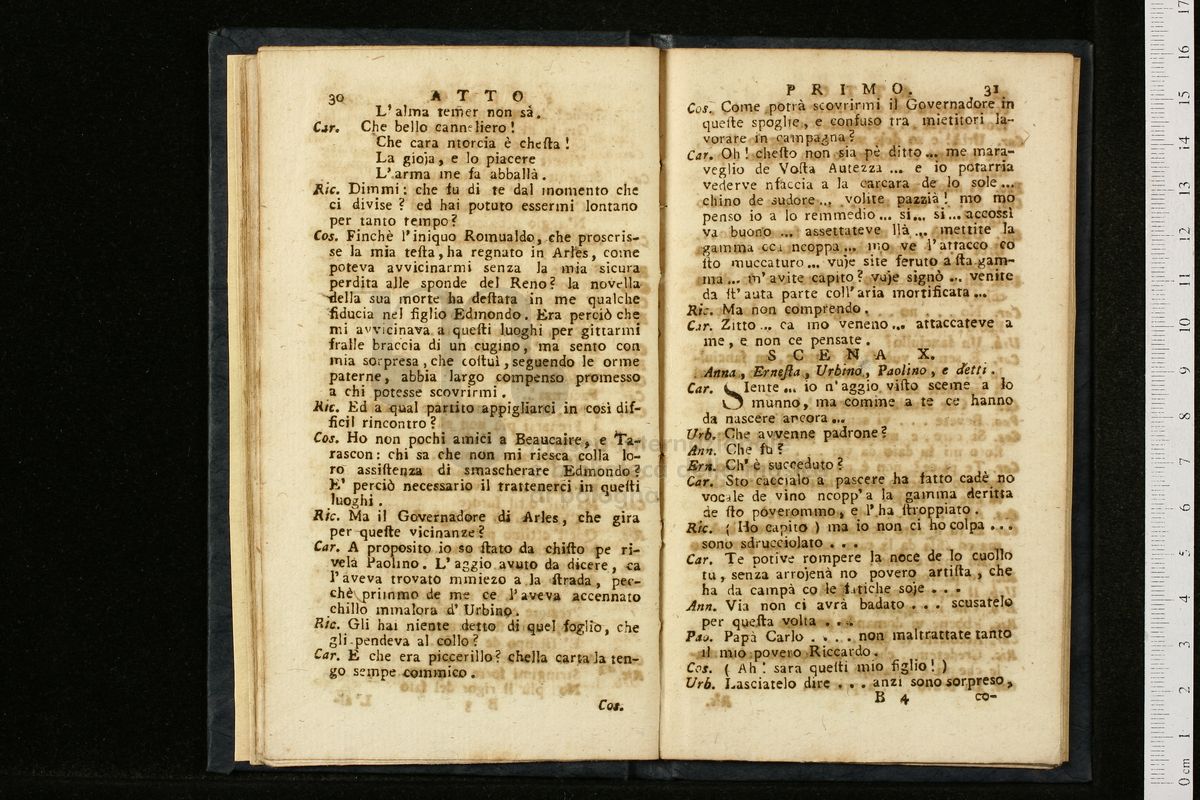 30 ATTO
L'alma temer non sà.
Car. Che bello canneliero!
Che cara ntorcia è chesta!
La gioja, e lo piacere
L'arma me fa abballà.
Ric. Dimmi: che fu di te dal momento che
ci divise? ed hai potuto essermi lontano
per tanto tempo?
Cos. Finchè l'iniquo Romualdo, che proscris-
se la mia testa, ha regnato in Arles, come
poteva avvicinarmi senza la mia sicura
perdita alle sponde del Reno? la novella
della sua morte ha destata in me qualche
fiducia nel figlio Edmondo. Era perciò che
mi avvicinava a questi luoghi per gittarmi
fralle braccia di un cugino, ma sento con
mia sorpresa, che costui, seguendo le orme
paterne, abbia largo compenso promesso
a chi potesse scovrirmi.
Ric. Ed a qual partito appigliarci in così dif-
ficil rincontro?
Cos. Ho non pochi amici a Beaucaire, e Ta-
rascon: chi sa che non mi riesca colla lo-
ro assistenza di smascherare Edmondo?
E' perciò necessario il trattenerci in questi
luoghi.
Ric. Ma il Governadore di Arles, che gira
per queste vicinanze?
Car. A proposito io so stato da chisto pe ri-
velà Paolino. L'aggio avuto da dicere, ca
l'aveva trovato mmiezo a la strada, pec-
chè primmo de me ce l'aveva accennato
chillo mmalora d'Urbino.
Ric. Gli hai niente detto di quel foglio, che
gli pendeva al collo?
Car. E che era piccerillo? chella carta la ten-
go sempe commico.
Cos.
PRIMO. 31
Cos. Come potrà scovrirmi il Governadore in
queste spoglie, e confuso tra mietitori la-
vorare in campagna?
Car. Oh! chesto non sia pè ditto... me mara-
veglio de Vosta Autezza ... e io potarria
vederve nfaccia a la carcara de lo sole...
chino de sudore... volite pazzià! mo mo
penso io a lo remmedio... si... si... accossì
va buono ... assettateve llà... mettite la
gamma ccà ncoppa... mo ve l'attacco co
sto muccaturo... vuje site feruto a sta gam-
ma... m'avite capito? vuje signò... venite
da st'auta parte coll'aria mortificata...
Ric. Ma non comprendo.
Car. Zitto... ca mo veneno... attaccateve a
me, e non ce pensate.
SCENA X.
Anna, Ernesta, Urbino, Paolino, e detti.
Car. SIente... io n'aggio visto sceme a lo
munno, ma comme a te ce hanno
da nascere ancora...
Urb. Che avvenne padrone?
Ann. Che fu?
Ern. Ch'è succeduto?
Car. Sto caccialo a pascere ha fatto cadè no
vocale de vino ncopp'a la gamma deritta
de sto poverommo, e l'ha stroppiato.
Ric. (Ho capito) ma io non ci ho colpa...
sono sdrucciolato...
Car. Te potive rompere la noce de lo cuollo
tu, senza arrojenà no povero artista, che
ha da campà co le fatiche soje...
Ann. Via non ci avrà badato... scusatelo
per questa volta...
Pao. Papà Carlo.... non maltrattate tanto
il mio povero Riccardo.
Cos. (Ah! sarà questi mio figlio!)
Urb. Lasciatelo dire... anzi sono sorpreso,
B 4 co-